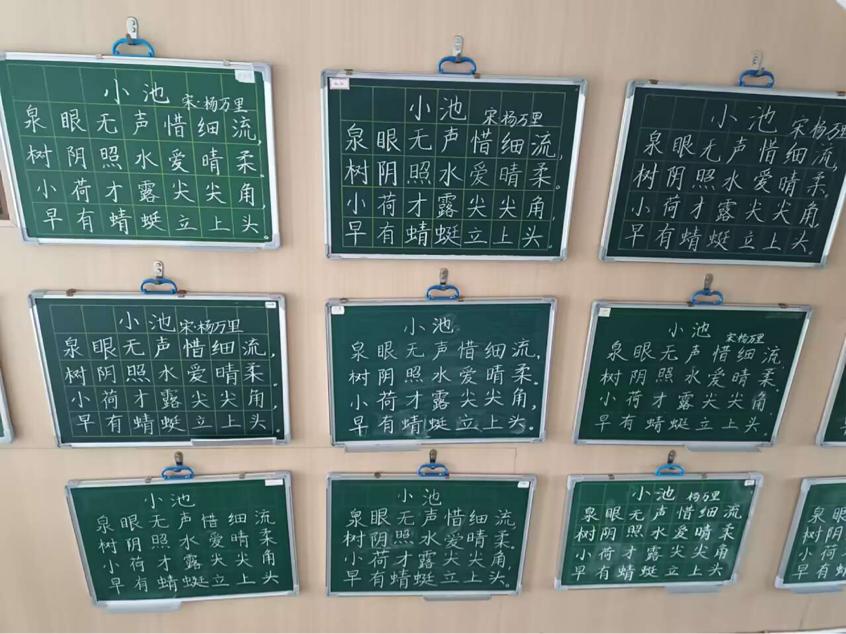 小池 宋·杨万里
泉眼无声惜细流，
树阴照水爱晴柔。
小荷才露尖尖角，
早有蜻蜓立上头。
小池 宋杨万里
泉眼无声惜细流，
树阴照水爱晴柔。
小荷才露尖尖角，
早有蜻蜓立上头。
小池 宋杨万里
泉眼无声惜细流，
树阴照水爱晴柔。
小荷才露尖尖角，
早有蜻蜓立上头。
小池 宋·杨万里
泉眼无声惜细流，
树阴照水爱晴柔。
小荷才露尖尖角，
早有蜻蜓立上头。
小池
泉眼无声惜细流，
树阴照水爱晴柔。
小荷才露尖尖角，
早有蜻蜓立上头。
小池 宋杨万里
泉眼无声惜细流，
树阴照水爱晴柔。
小荷才露尖尖角，
早有蜻蜓立上头。
小池
泉眼无声惜细流
树阴照水爱晴柔
小荷才露尖尖角
早有蜻蜓立上头
小池
泉眼无声惜细流
树阴照水爱晴柔。
小荷才露尖尖角，
早有蜻蜓立上头。
小池 杨万里
泉眼无声惜细流
树阴照水爱晴柔。
小荷才露尖尖角
早有蜻蜓立上头。
泉眼
树阴
小荷
早有